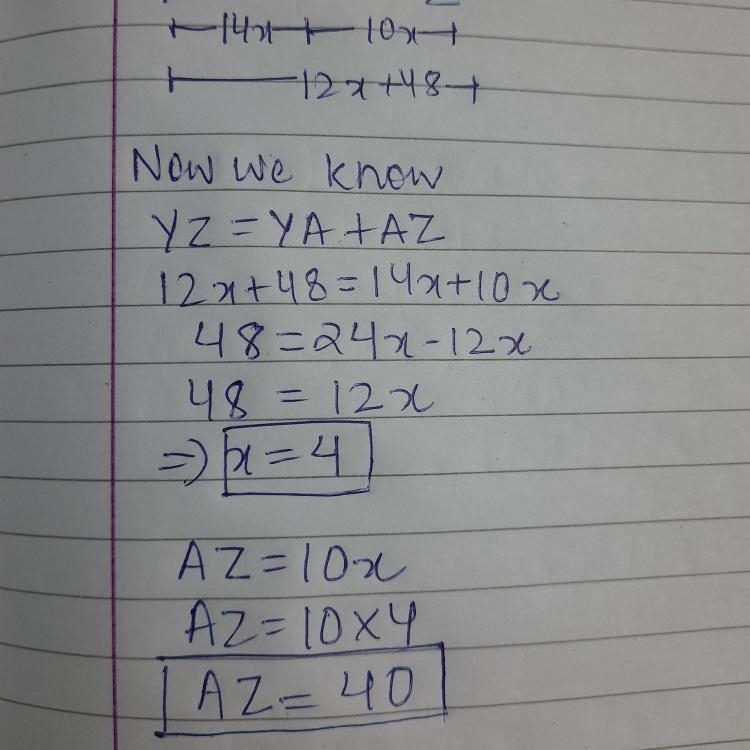 14x 10x
12x+48
Now we know
YZ = YA + AZ
12x+48=14x+10x
48=24x-12x
48 = 12x
=> x=4
AZ=10x
AZ=10×4
AZ=40